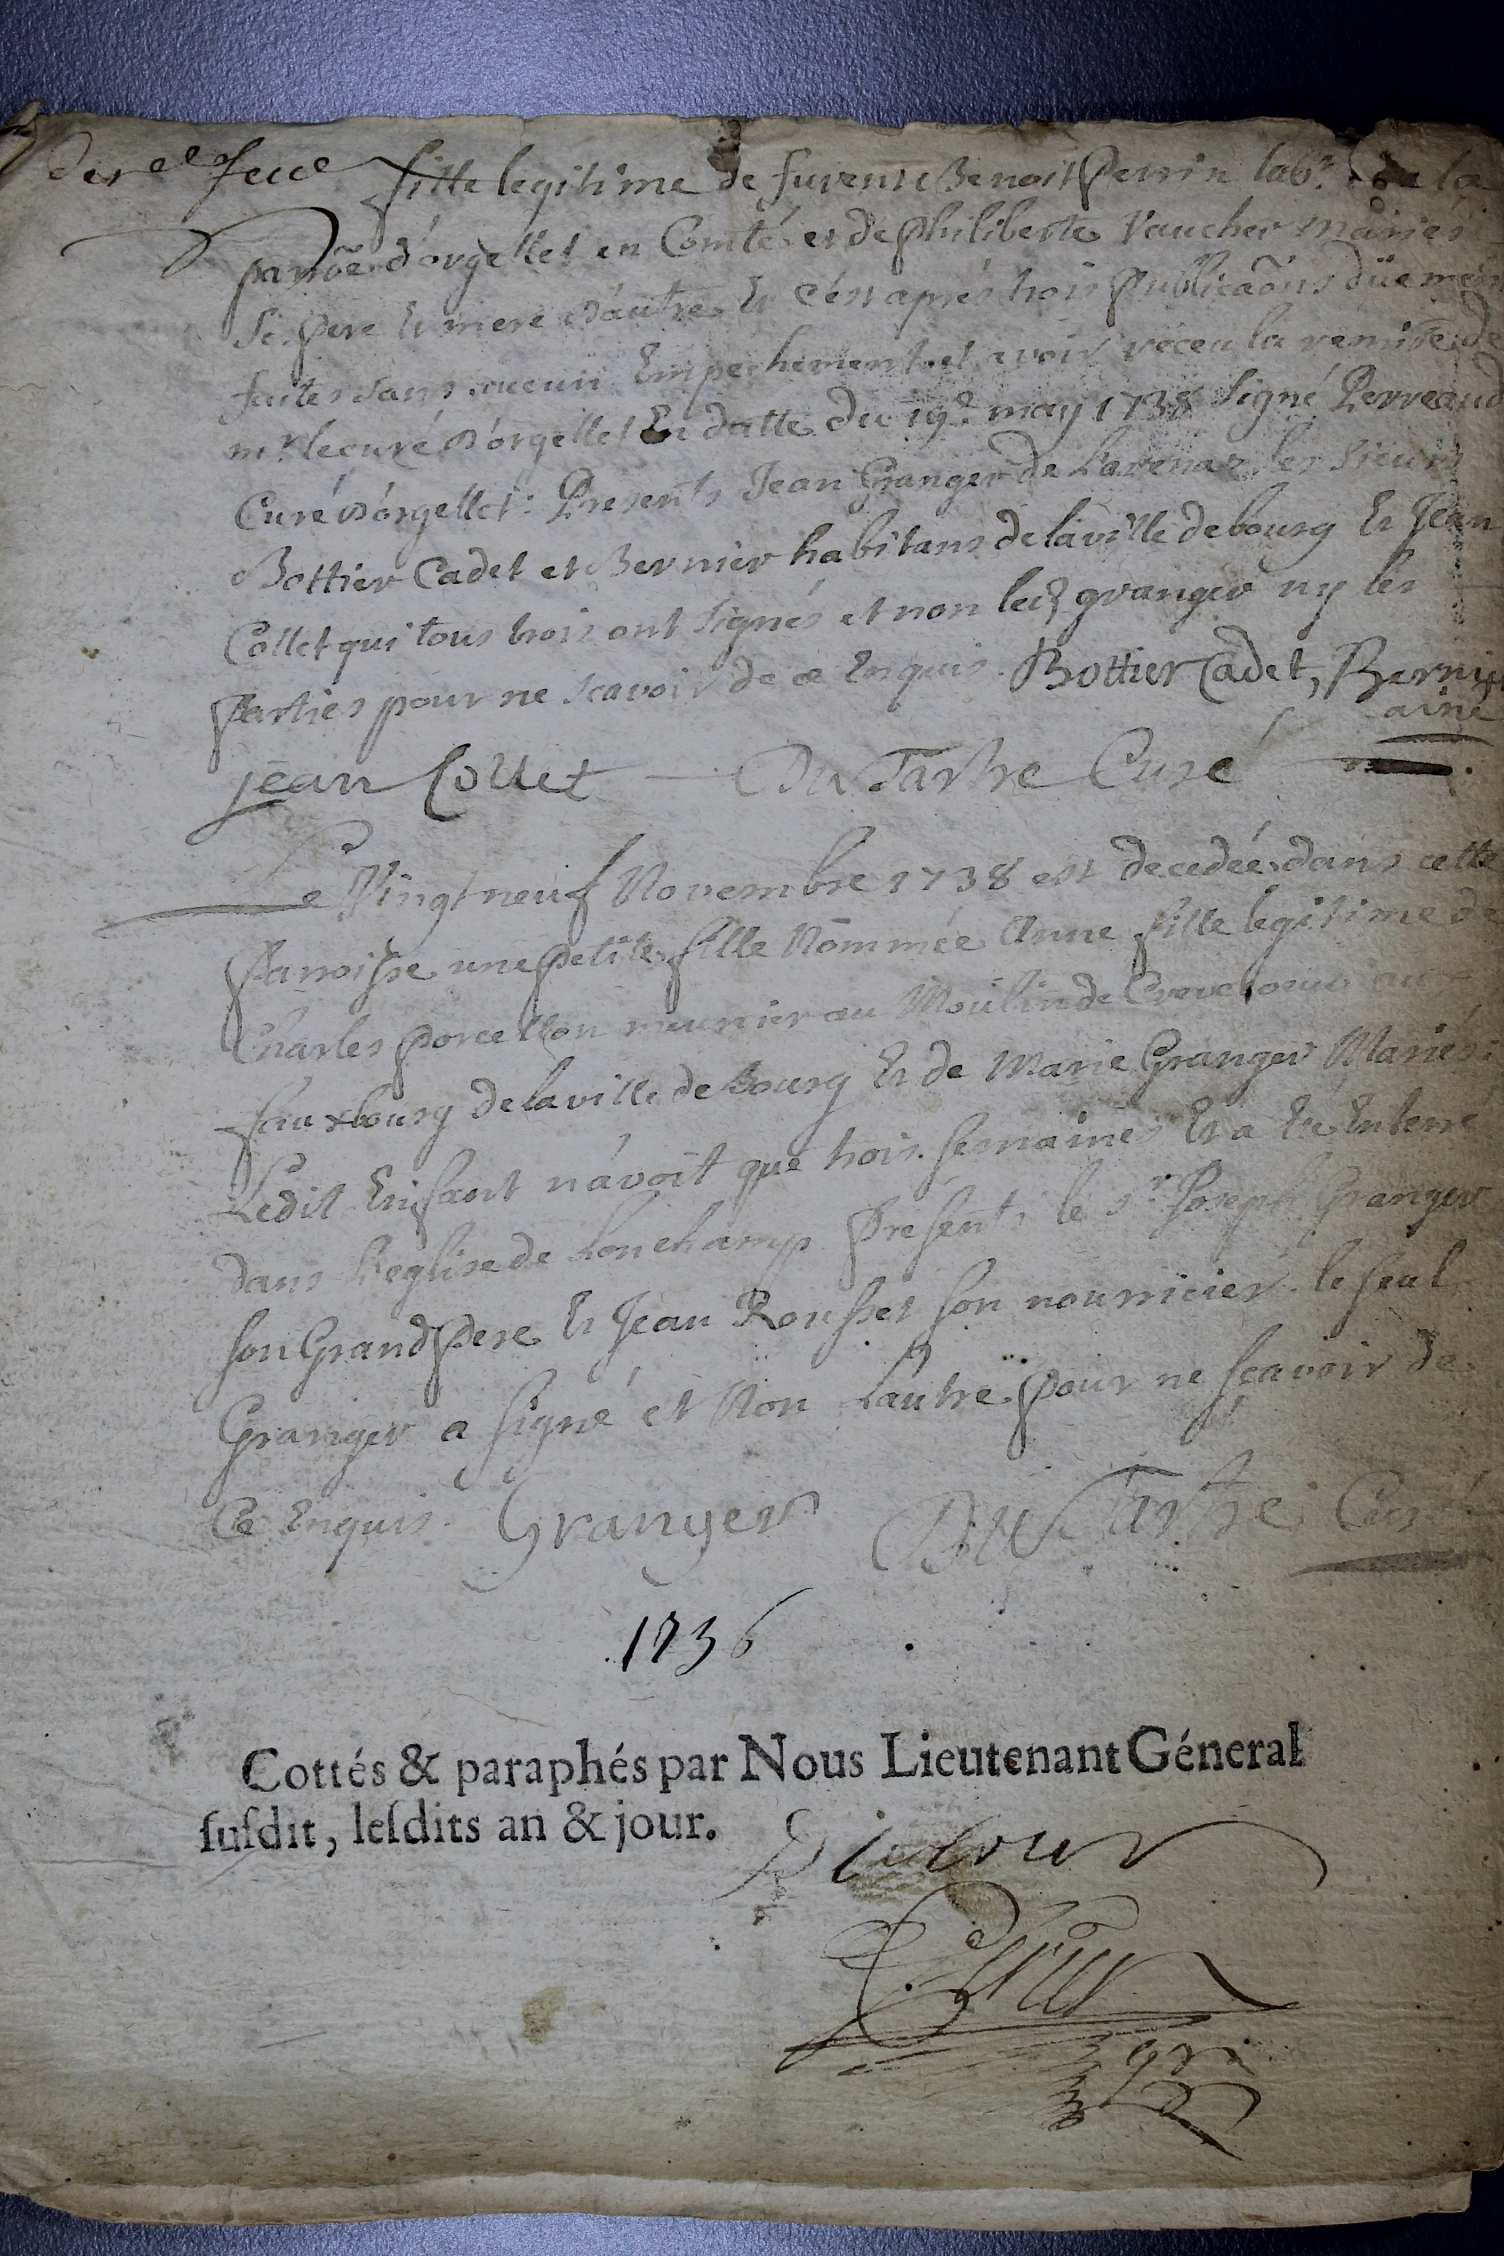 Der.ee feee
fille legitime de fu rent Benoit Perrin lab.r de la
parroẽ d'orgellet en Comté, et de Philiberte Vaucher mariés
Ses pere Et mere d'autre Et c'est aprés trois Publicaõns düement
faites sans aucun Empechement et avoir receu la remise de
m.r le curé d'orgellet En datte du 19.e may 1738 Signé Perreaud
Curé d'orgellet: Presents Jean Granger de les sieurs
Bottier Cadet et Bernier habitans de la ville de bourg Et Jean
Collet qui tous trois ont signés et non led granger ny les
Parties pour ne scavoir de ce Enquis. Bottier Cadet, Bernier
ainé
jean Collet Du Tartre Curé
Le Vingt neuf Novembre 1738 est decedée dans cette
Parroisse une petite fille Nommée Anne fille legitime de
Charles Porcellon munier au Moulin de Crevecoeur au
fauxbourg de la ville de Bourg Et de Marie Granger Mariés:
Ledit Enfant n'avoit que trois semaines Et a Eté Enterré
dans l'eglise de Lonchamp Presents le s.r Joseph Granger
son Grand Pere Et Jean Rousset son nourricier. le seul
Granger a signé et Non L'autre pour ne scavoir de
Ce Enquis. Granger Du Tartre Curé
1736
Cottés & paraphés par Nous Lieutenant Géneral
ſuſdit, leſdits an & jour.